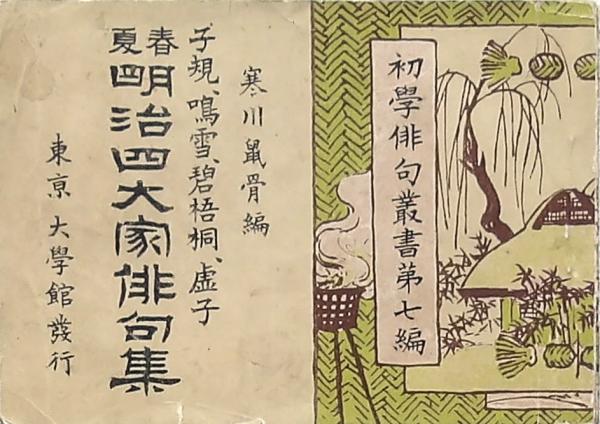 初學俳句叢書第七編
寒川鼠骨編
子規、鳴雪、碧梧桐、虚子
春夏
明治四大家俳句集
東京大學館發行